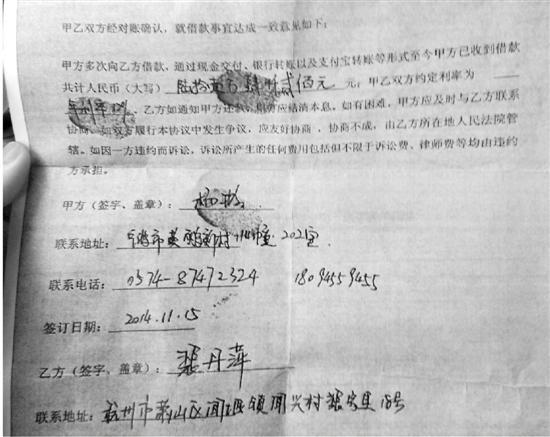 甲乙双方经对账确认，就借款事宜达成一致意见如下：
甲方多次向乙方借款，通过现金交付、银行转账以及支付宝转账等形式至今甲方已收到借款
共计人民币（大写） 陆拾 万 肆 贰佰元 元，甲乙双方约定利率为
年利率 ，乙方如通知甲方还款，甲方应结清本息。如有困难，甲方应及时与乙方联系
协商。如双方履行本协议中发生争议，应友好协商，协商不成，由乙方所在地人民法院管
辖。如因一方违约而诉讼，诉讼所产生的任何费用包括但不限于诉讼费、律师费等均由违约
方承担。
甲方（签字、盖章）： 杨
联系地址： 市黄 新村 202室
联系电话： 0574-87472324 18094559455
签订日期： 2014.11.15
乙方（签字、盖章）： 裴丹萍
联系地址： 杭州市萧山区闻堰镇闻兴村 18号